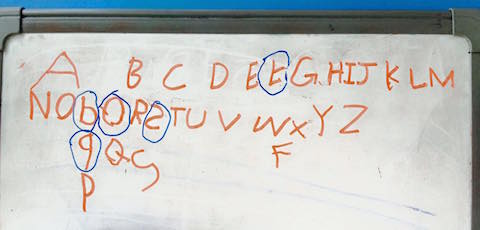 A B C D E E G H I J K L M
N O b O R 2 T U V W X Y Z
q Q S F
p